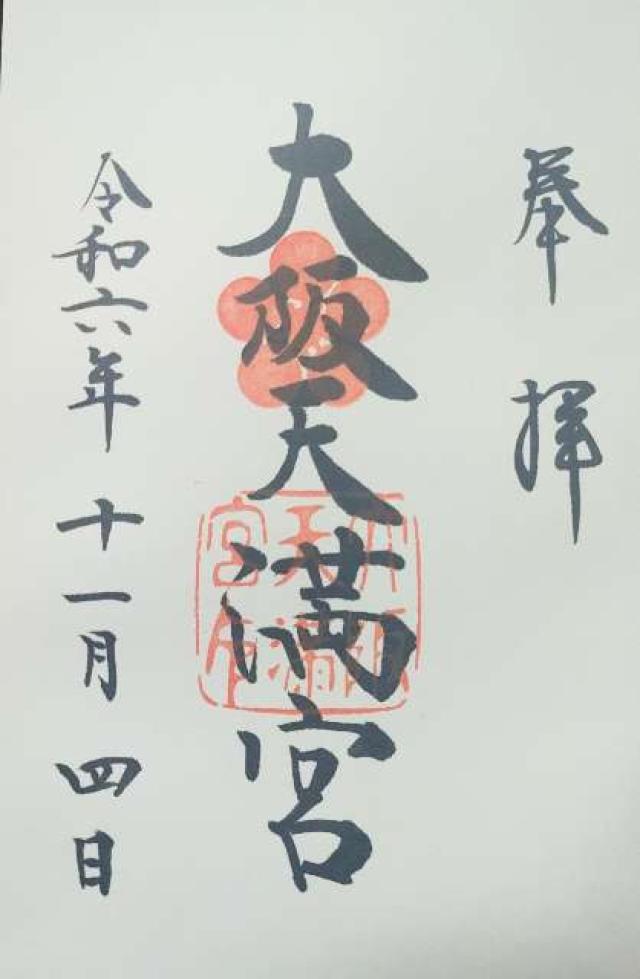 奉拝
大阪天満宮
令和六年十一月四日